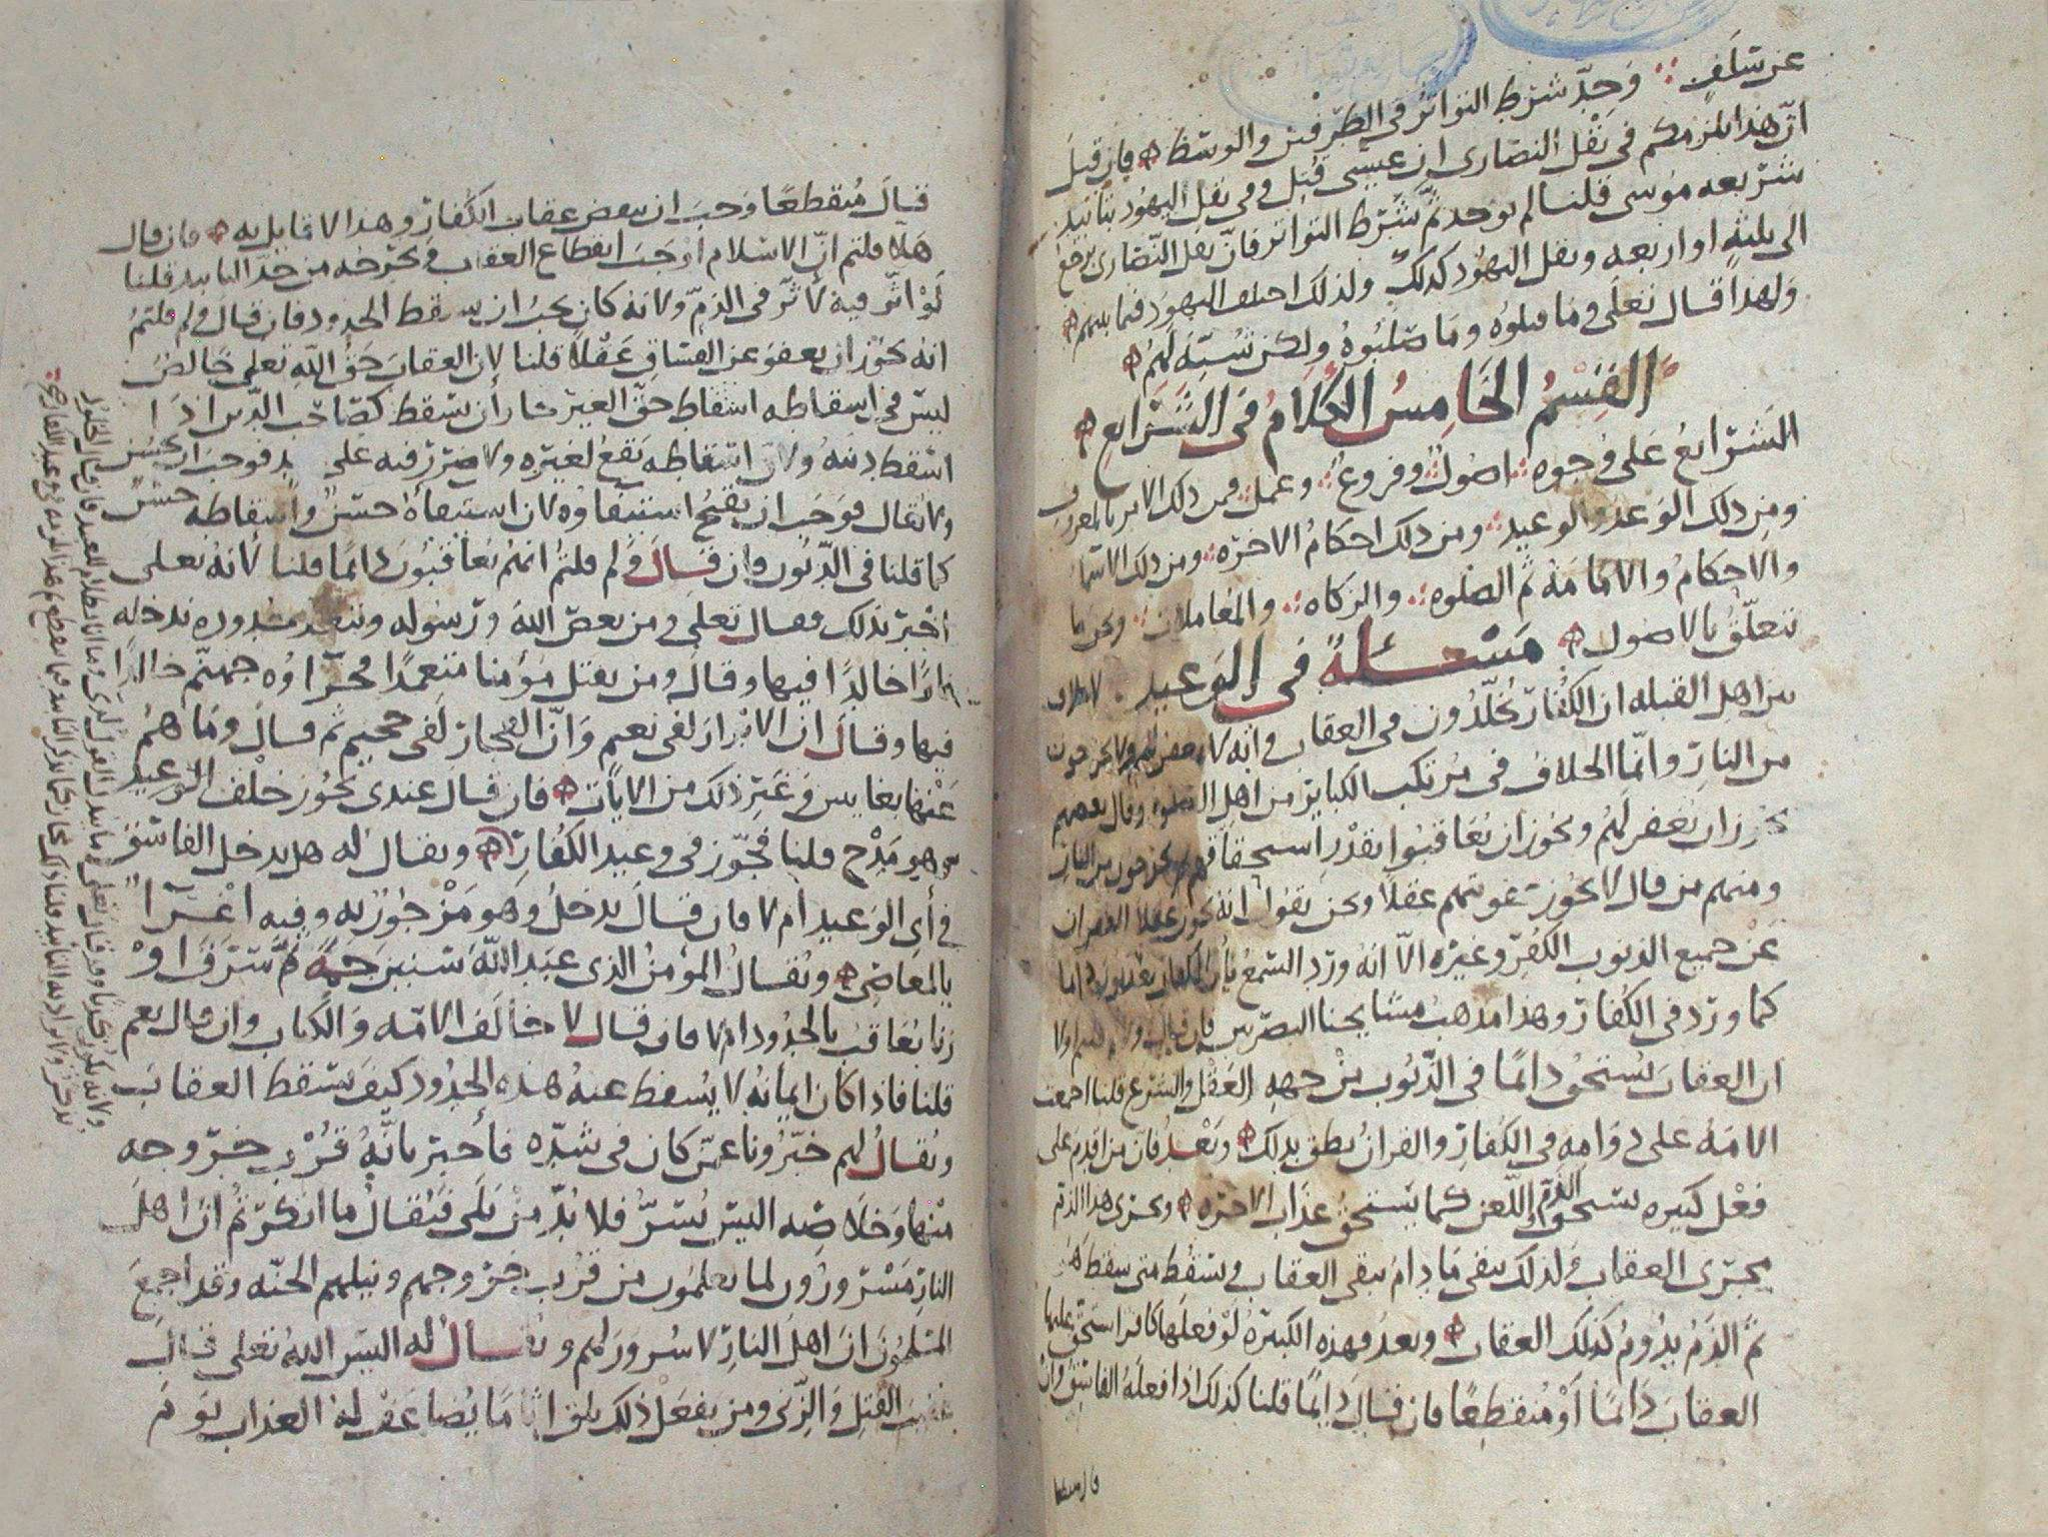 عن سلف وحد شرط التواتر في الطرفين والوسط فان قيل
ان هذا يلزمكم في نقل النصارى ان عيسى قتل وفي نقل اليهود بتأبيد
شريعه موسى قلنا لم يوجد ثم شرط التواتر فان نقل النصارى يرجع
الى ثلثه او اربعه ونقل اليهود كذلك ولذلك اختلف اليهود فيما بينهم
ولهذا قال تعلى وما قتلوه وما صلبوه ولكن شبه لهم
القسم الخامس الكلام في الشرايع
الشرايع على وجوه اصول وفروع وعمل فمن ذلك الامر بالمعروف
ومن ذلك الوعد والوعيد ومن ذلك احكام الاخره ومن ذلك الاسما
والاحكام والامامة ثم الصلوه والزكاه والمعاملات ونحن ما
نتعلق بالاصول مسئلة في الوعيد لا خلاف
بين اهل القبله ان الكفار مخلدون في العقاب وانه لا يغفر لهم ولا يخرجون
من النار وانما الخلاف في مرتكب الكباير من اهل الصلوه وقال بعضهم
يجوز ان يغفر لهم ويجوز ان يعاقبوا بقدر استحقاقهم ثم يخرجون من النار
ومنهم من قال لا يجوز عقوبتهم عقلا ونحن نقول انه يجوز عقلا الغفران
عن جميع الذنوب الكفر وغيره الا انه ورد السمع بأن الكفار يعذبون دايما
كما ورد في الكفار وهذا مذهب مشايخنا البصريين فان قيل ولم قلتم اولا
ان العقاب يستحق دايما في الذنوب من جهه العقل والشرع قلنا اجمعت
الامة على دوامه في الكفار والقران نطق بذلك وبعد فان من اقدم على
فعل كبيره يستحق الذم واللعن كما يستحق عذاب الاخره ويجري هذا الذم
مجرى العقاب ولذلك يبقى ما دام يبقى العقاب ويسقط متى سقط
ثم الذم يدوم كذلك العقاب وبعد فهذه الكبيرة لو فعلها كافر استحق عليها
العقاب دايما او منقطعا فان قال دايما قلنا كذلك اذا فعله الفاسق وان
قال منقطعا
قال منقطعا وجب ان ينقص عقاب الكفار وهذا لا قايل به فان قال
هلا قلتم ان الاسلام اوجب انقطاع العقاب ويخرجه من حد التابيد قلنا
لو اثر فيه لاثر في الذم ولانه كان يجب ان يسقط الحدود فان قال ولم قلتم
انه يجوز ان يعفو عن الفساق عقلا قلنا لان العقاب حق الله تعلى خالص
ليس في اسقاطه اسقاط حق الغير فجاز ان يسقط كصاحب الدين اذا
اسقط دينه ولان اسقاطه نفع لغيره ولا ضرر فيه على فوجب ان يحسن
ولا يقال فوجب ان يقبح استيفاوه لان استيفاه حسن واسقاطه حسن
كما قلنا في الديون وان قال ولم قلتم انهم يعاقبون دايما قلنا لانه تعلى
اخبر بذلك فقال تعلى ومن يعص الله ورسوله ويتعد حدوده ندخله
نارا خالدا فيها وقال ومن يقتل مؤمنا متعمدا فجزاؤه جهنم خالدا
فيها وقال ان الابرار لفي نعيم وان الفجار لفي جحيم ثم قال وما هم
عنها بغايبين وغير ذلك من الايات فان قال عندي يجوز خلف الوعيد
وهو مدح قلنا فجوز في وعيد الكفار ويقال له هل يدخل الفاسق
في أي الوعيد ام لا فان قال يدخل وهو من جوز له وفيه اغراء
بالمعاصي ويقال المؤمن الذي عبد الله سنين جمة ثم سرق او
زنا يعاقب بالحدود ام لا فان قال لا خالف الامه والكتاب وان قال نعم
قلنا فاذا كان ايمانه لا يسقط عنه هذه الحدود كيف يسقط العقاب
ويقال لهم خبرونا عمن كان في شده فأخبر بانه قرب خروجه
منها وخلاصه اليس يسر فلا بد من بلى فيقال ما انكرتم ان اهل
النار مسرورون لما يعلمون من قرب خروجهم ونيلهم الجنه وقد اجمع
المسلمون ان اهل النار لا سرور لهم ويقال له اليس الله تعلى قال
عقيب القتل والزنى ومن يفعل ذلك يلق اثاما يضاعف له العذاب يوم